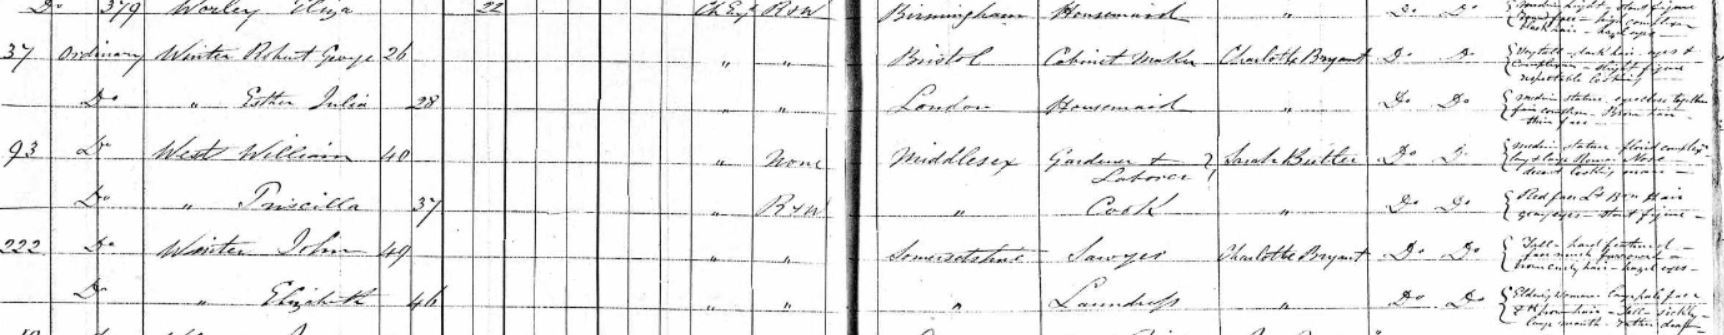 Do 379 Worley Eliza 22 Ch Eng R&W Birmingham Housemaid " Do Do
37 Ordinary Winter Robert George 26 " " Bristol Cabinet Maker Charlotte Bryant Do Do { Very tall - dark hair - eyes &
complexion - slight figure
respectable looking
Do " Esther Julia 28 " " London Housemaid " Do Do { medm stature - eyes close together
fair complxn - Brown hair -
thin face
93 Do West William 40 " None Middlesex Gardener & Laborer } Sarah Butler Do Do { medm stature - florid complex
large Roman Nose -
decent looking man -
Do " Priscilla 37 " R&W " Cook " Do Do { Red face Lt Brn Hair
gray eyes - stout figure -
222 Do Winter John 49 " " Somersetshire Sawyer Charlotte Bryant Do Do { Tall - hard featured -
face much furrowed -
curly hair - hazel eyes -
Do " Elizabeth 46 " " " Laundress " Do Do { Elderly Woman Long pale face
hair - Tall - sickly -
large mouth